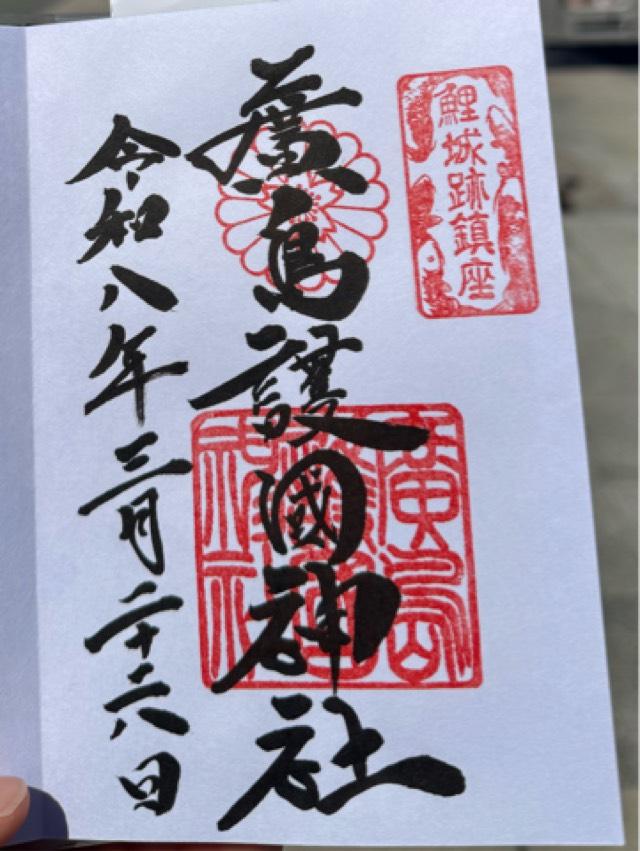 鯉城跡鎮座
廣島護國神社
廣島護國神社
令和八年三月二十六日